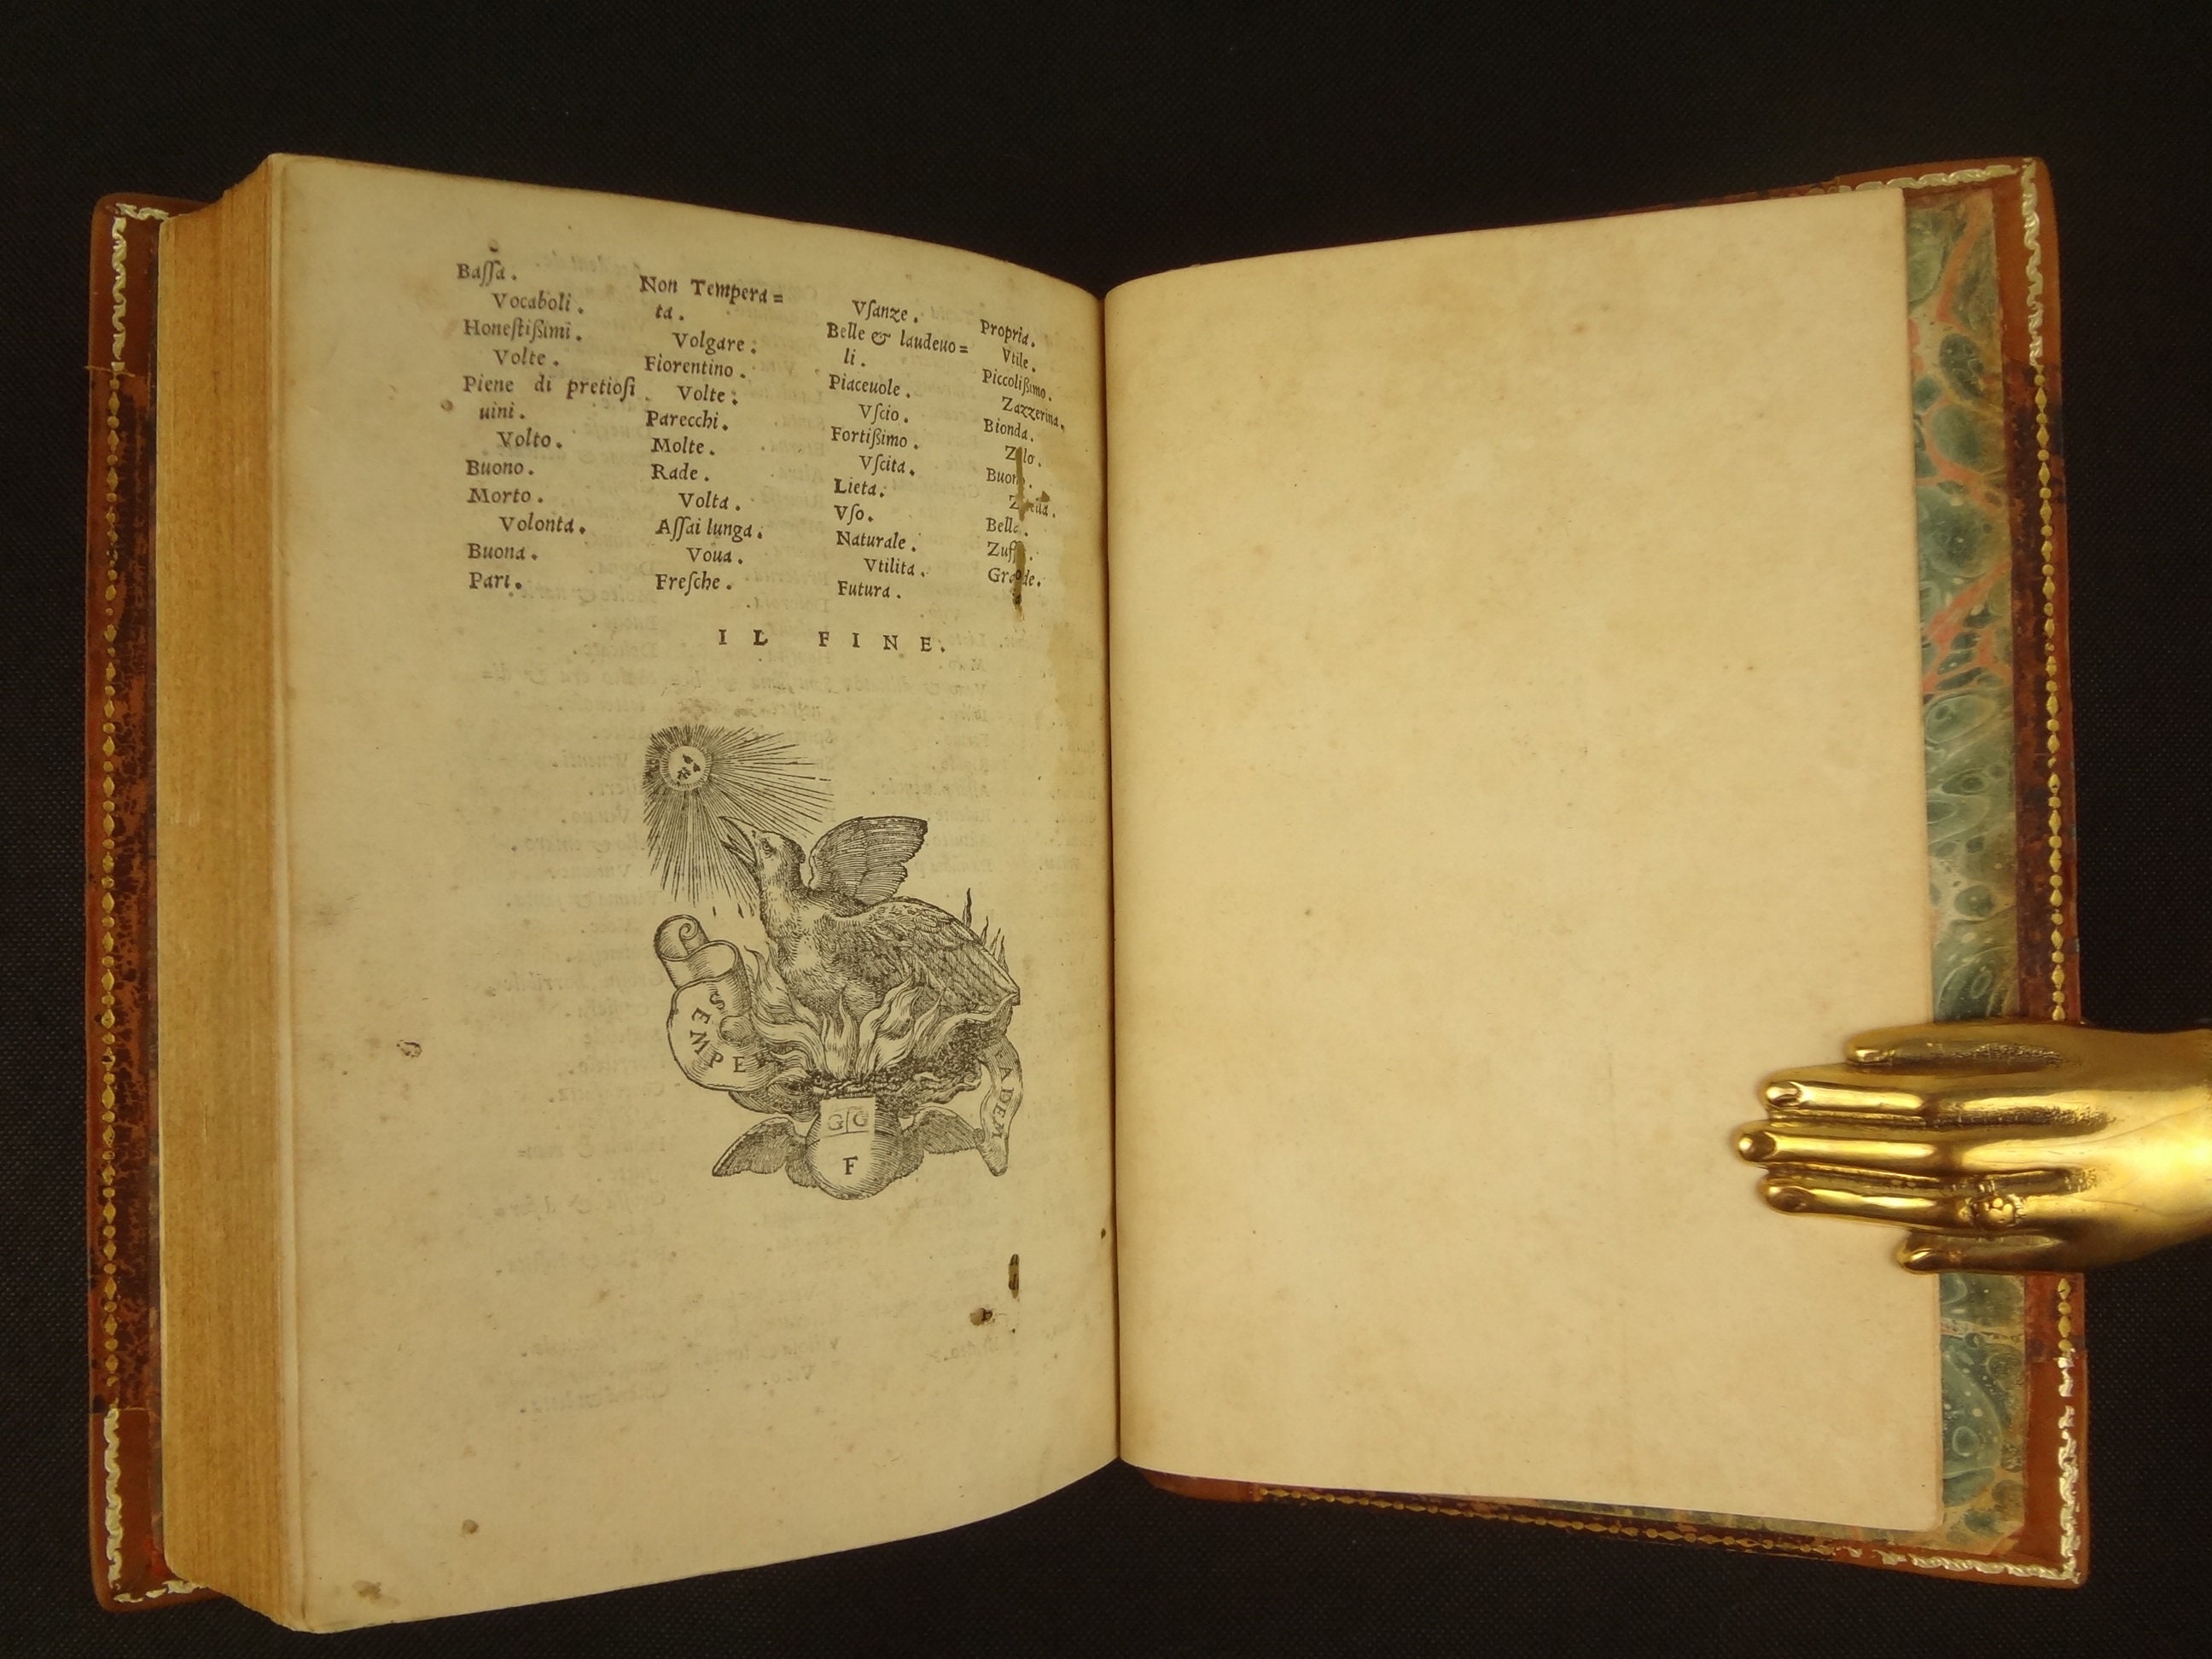 Baſſa.
Vocaboli.
Honeſtiſſimi.
Volte.
Piene di pretioſi
uini.
Volto.
Buono.
Morto.
Volonta.
Buona.
Pari.
Non Tempera=
ta.
Volgare.
Fiorentino.
Volte.
Parecchi.
Molte.
Rade.
Volta.
Aſſai lunga.
Voua.
Freſche.
Vſanze.
Belle & laudeuo=
li.
Piaceuole.
Vſcio.
Fortißimo.
Vſcita.
Lieta.
Vſo.
Naturale.
Vtilita.
Futura.
Propria.
Vtile.
Piccolißimo.
Zazzerina.
Bionda.
Buon
Bella.
IL FINE.
SEMPER
EADEM
G G
F